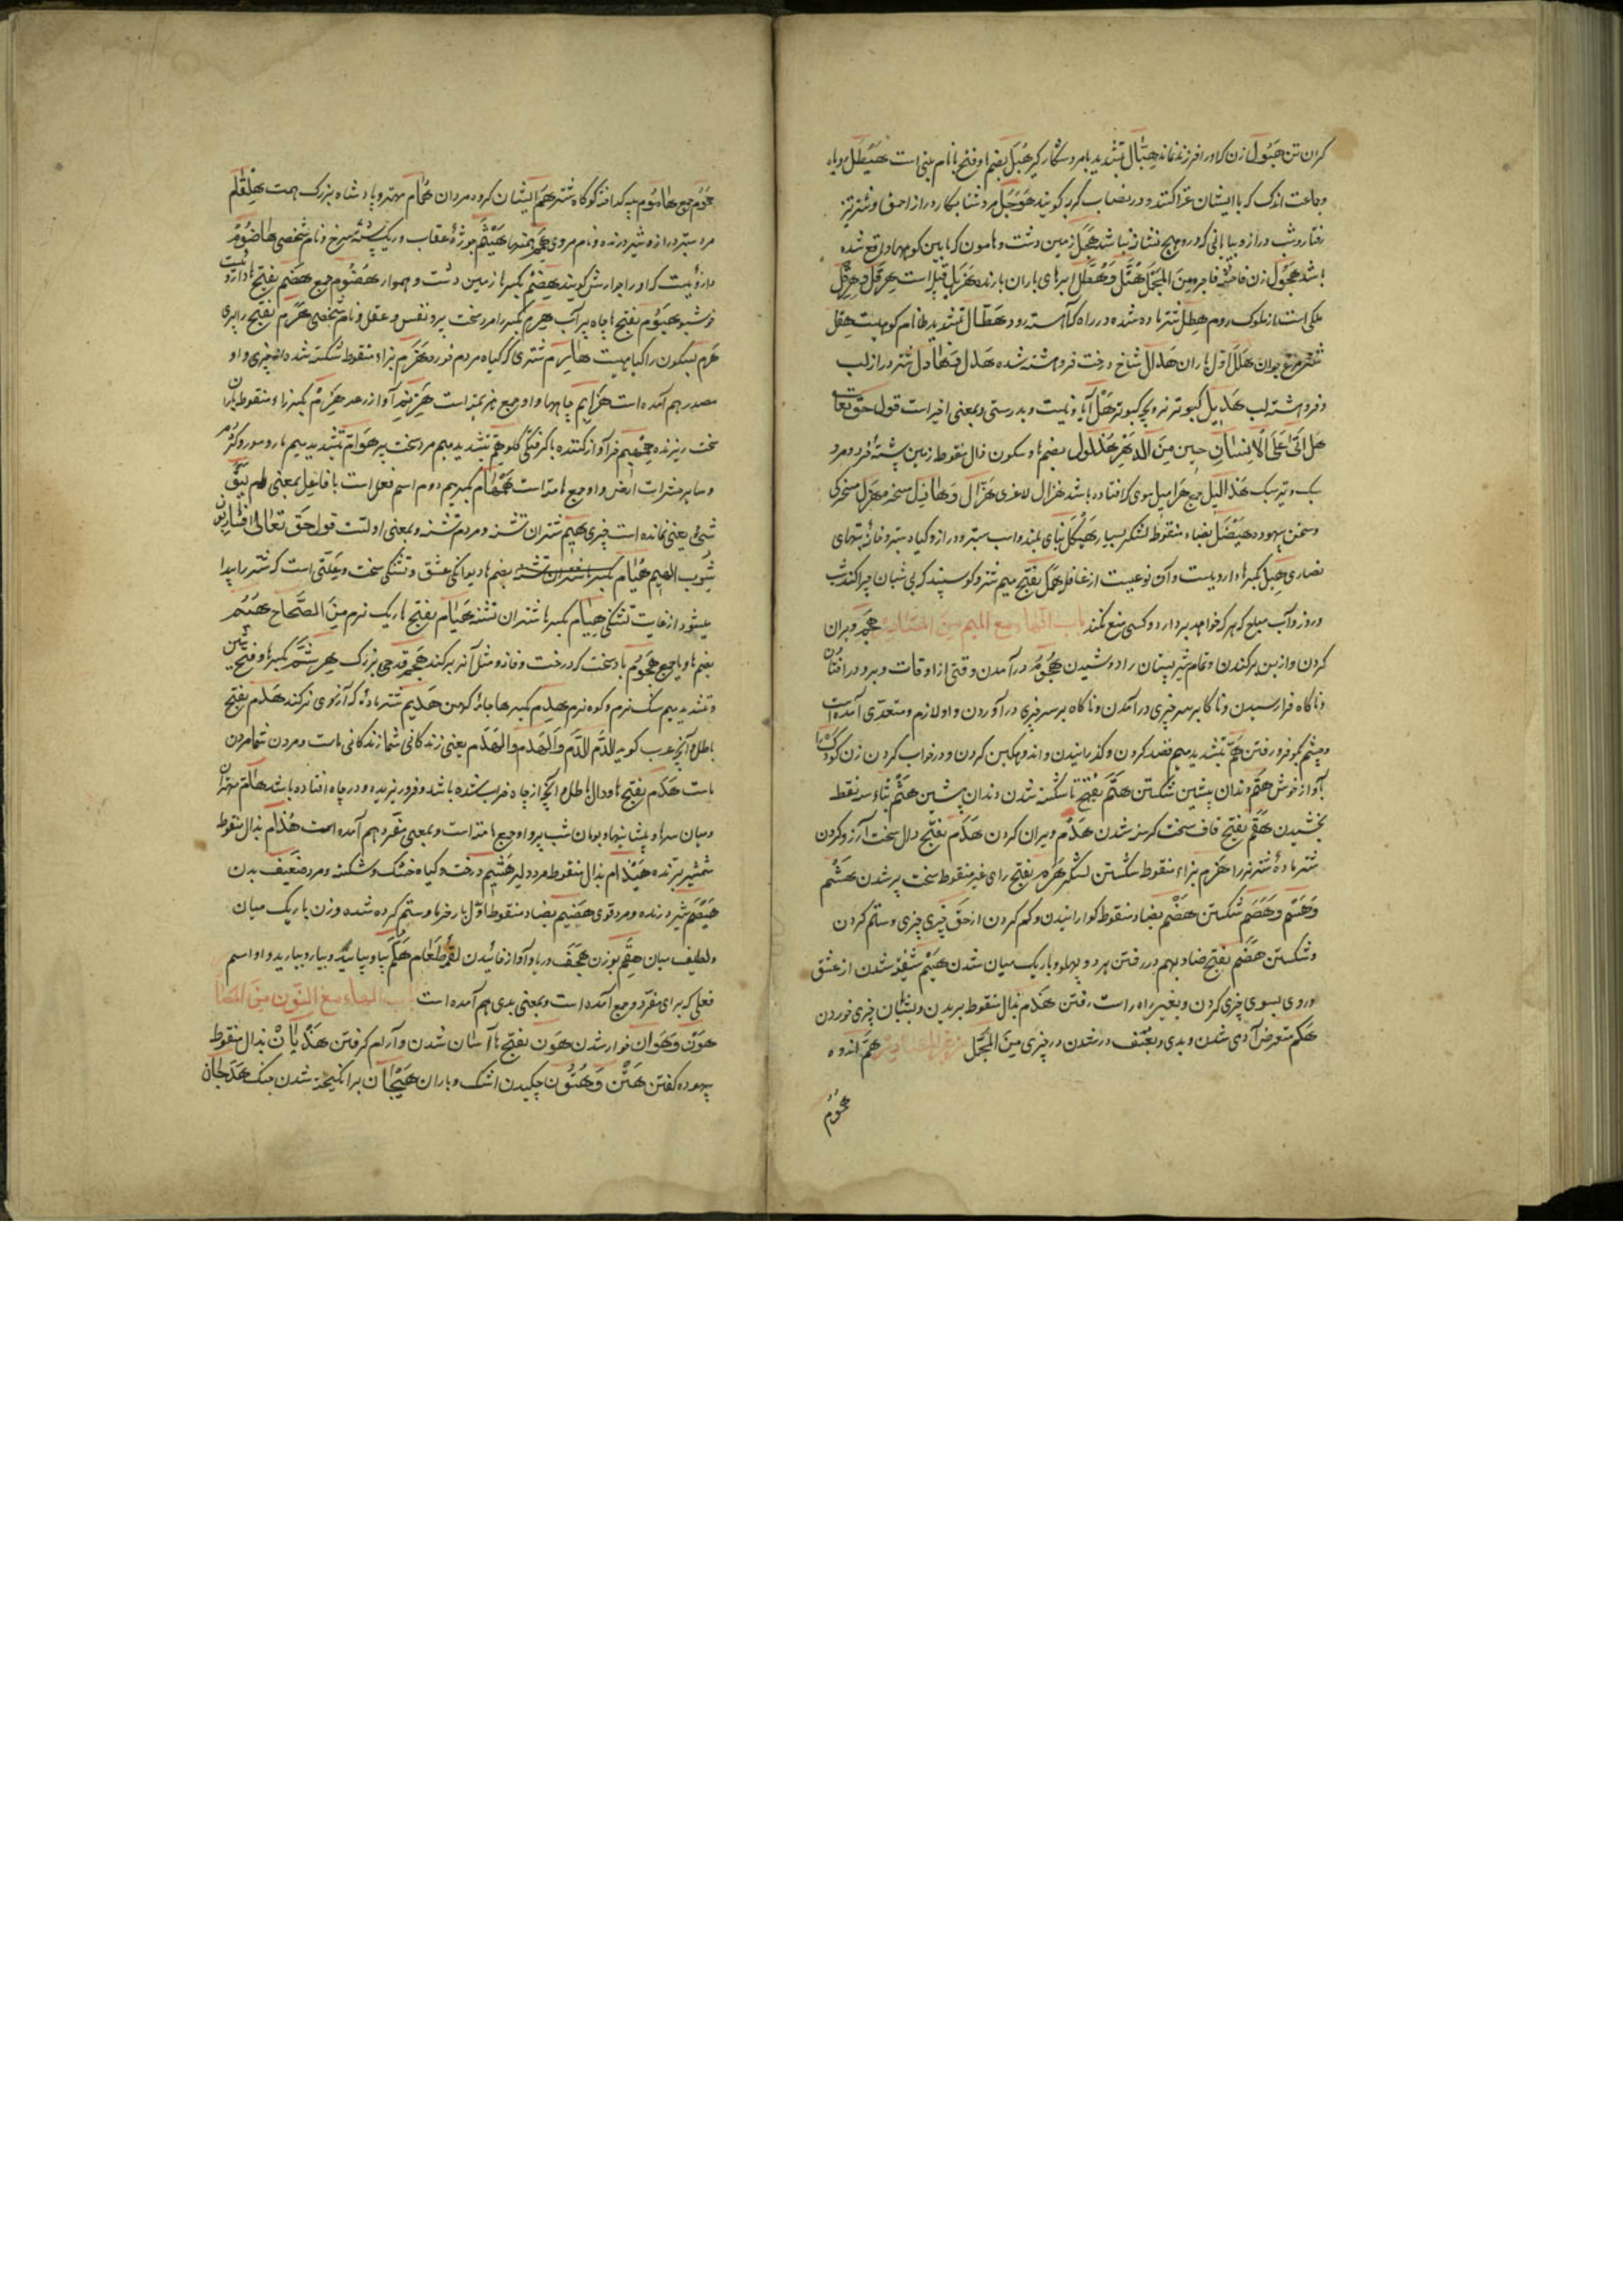 کران تن هَبُول زن که او را فرزند نماند هِبّال بتشدید با مرد شکار گیر هُبَل بضم ها و فتح با نام بتی است هَیطَل روباه
و جماعت اندک که با ایشان غزا کنند و در نصاب گربه گویند هَوجَل مرد شتابکار و دراز احمق و شتر تیز
رفتار و شب دراز و بیابانی که در و هیچ نشان نباشد هَجل زمین دشت و هامون که مابین کوهها واقع شده
باشد هَجُول زن فاحشه فاجره مِنَ المُجمَل هُتَّل وَ هُطَّل ابرهای باران بارنده هَزبَل قبیله است هِرَقل و هِرقِل
ملکی است از ملوک روم هِطل شتر مانده شده در راه که آهسته رود هَطّال بتشدید طا نام کوهیست هِقل
شتر مرغ جوان هَلَل اوّل باران هَدال شاخ درخت فروهشته شده هَدِل و هادِل شتر دراز لب
و فروهشته لب هَدِیل کبوتر نر و بچه کبوتر هَل آیا و نیست و بدرستی و بمعنی اخیر است قول حق تعالی
هَل اَتی عَلَی الاِنسانِ حِینٌ مِنَ الدَهرِ هُذلُول بضم ها و سکون ذال منقوط زمین پشته خرد و مرد
سبک و تیر سبک هَذالیل جمع هَرامیل موی که افتاده باشد هُزال لاغری هَزّال وَ هازِل سخره مَهزِل سخرگی
و سخن بیهوده هَیضَل بضاد منقوط لشکر بسیار هَیکَل بنای بلند و اسب ستبر و دراز و گیاه ستبر و خانه بتهای
نصاری هِبِل بکسر ها داروییست و آن نوعیست از عاقل هَمَل بفتح میم شتر و گوسپند که بی شبان چرا کند شب
و روز و آب مباح که هر که خواهد بردارد و کسی منع نکند باب الهاء مع المیم من المصادر هَجم ویران
کردن و از بن برکندن و تمام شیر پستان را دوشیدن هُجُوم درآمدن وقتی از اوقات و برو درافتادن
و ناگاه فرا رسیدن و ناگاه بر سر چیزی درآمدن و ناگاه بر سر چیزی درآوردن و او لازم و متعدّی آمده است
و چشم بگو فرو رفتن هَمّ بتشدید میم قصد کردن و گذرانیدن و اندوهگین کردن و در خواب کردن زن کودک را
بآواز خوش هَتم دندان پیشین شکستن هَتَم بفتح تا شکسته شدن دندان پیشین هَثم بثاء سه نقط
بخشیدن هَقَم بفتح قاف سخت گرسنه شدن هَدم ویران کردن هَدَم بفتح دال سخت آرزو کردن
شتر ماده شتر نر را هَزم بزاء منقوط شکستن لشکر هَرَم بفتح رای غیر منقوط سخت پیر شدن هَشم
وَ هَتم وَ هَصم شکستن هَضم بضاد منقوط گوارانیدن و کم کردن از حق چیزی چیزی و ستم کردن
و شکستن هَضَم بفتح ضاد بهم در رفتن هر دو پهلو و باریک میان شدن هَیم شیفته شدن از عشق
و روی بسوی چیزی کردن و بغیر راه راست رفتن هَذم بذال منقوط بریدن و بشتاب چیزی خوردن
هَکم متعرض آدمی شدن و بدی و بعنف در شدن در چیزی مِنَ المُجمَل من غیر المصادر هَمّ اندوه
هُمُومٌ
هُمُوم جمع هامُوم پیه گداخته کوهان شتر هُم ایشان گروه مردان هُمام مهتر و پادشاه بزرگ همت هِلقام
مرد ستبر دراز و شیر درنده و نام مردی هَیثَم بچه عقاب و ریگ پشته سرخ و نام شخصی هاضُوم
داروئیست که او را جوارش گویند هِضم بکسر ها زمین دشت و هموار هُضُوم جمع هَضم بفتح ها داروئیست
خوشبو هَیُوم بفتح ها چاه پر آب هِرم بکسر را مرد سخت پیر و نفس و عقل و نام شخصی هَرَم بفتح را پیری
هَرم بسکون را گیاهیست هارِم شتری که گیاه مردم خورد هَزم بزاء منقوط شکسته شده از چیزی و او
مصدر هم آمده است هَزایم چاهها و او جمع هزیمه است هَزیم آواز رعد هَزِم بکسر زاء منقوط باران
سخت ریزنده همهیم خر آواز کننده با گرفتگی گلو هِمّ بتشدید میم مرد سخت پیر هَوامّ بتشدید میم مار و مور و کژدم
و سایر حشرات ارض و او جمع هامّه است هَمهام بکسر میم دوم اسم فعل است با فاعل بمعنی لَم یَبقَ
شَیٌ یعنی نمانده است چیزی هِیم شتران تشنه و مردم تشنه و بمعنی اولست قول حق تعالی فَشارِبُونَ
شُربَ الهِیمِ هُیام بضم ها دیوانگی عشق و تشنگی سخت و علّتی است که شتر را پیدا
میشود از غایت تشنگی هِیام بکسر ها شتران تشنه هَیام بفتح ها ریک نرم مِنَ الصَّحاح هُیّم
بضم ها و یا جمع هَجُوم باد سخت که درخت و خانه و مثل آنرا برکند هَجم قدحی بزرگ هِرشَمّ بکسر ها و فتح شین
و تشدید میم سنگ نرم و کوه نرم هِدم بکسر ها جامه کهن هَدِیم شتر ماده که آرزوی نر کند هَدَم بفتح
باطل و آنچه عرب گوید اَلدَّمَ الدَّمَ وَالهَدَمَ وَالهَدَمَ یعنی زندگانی شما زندگانی ماست و مردن شما مردن
ماست هَدَم بفتح ها و دال باطل و آنچه از چاه خراب شده باشد و فرو ریزیده و در چاه افتاده باشد هامّ مهتران
و میان سرها و پیشانیها و بومان شب پر و او جمع هامّه است و بمعنی مفرد هم آمده است هُذام بذال منقوط
شمشیر برّنده هَیذام بذال منقوط مرد دلیر هَشِیم درخت و گیاه خشک و شکسته و مرد ضعیف بدن
هَیصَم شیر درنده و مرد قوی هَضِیم بضاد منقوط اوّل بار خرما و ستم کرده شده و زن باریک میان
و لطیف میان هِقَمّ بوزن هِجَفّ دریا و آواز خائیدن لقمه طعام هَلُمَّ بیا و بیائید و بیار و بیارید و او اسم
فعلی که برای مفرد و جمع آمده است و بمعنی بدی هم آمده است باب الهاء مع النّون من المصادر
هُون وَ هَوان خوار شدن هَون بفتح ها آسان شدن و آرام گرفتن هَذَیان بذال منقوط
بیهوده گفتن هَتن وَ هُتُون چکیدن اشک و باران هَیَجان برانگیخته شدن جنگ هَدَجان